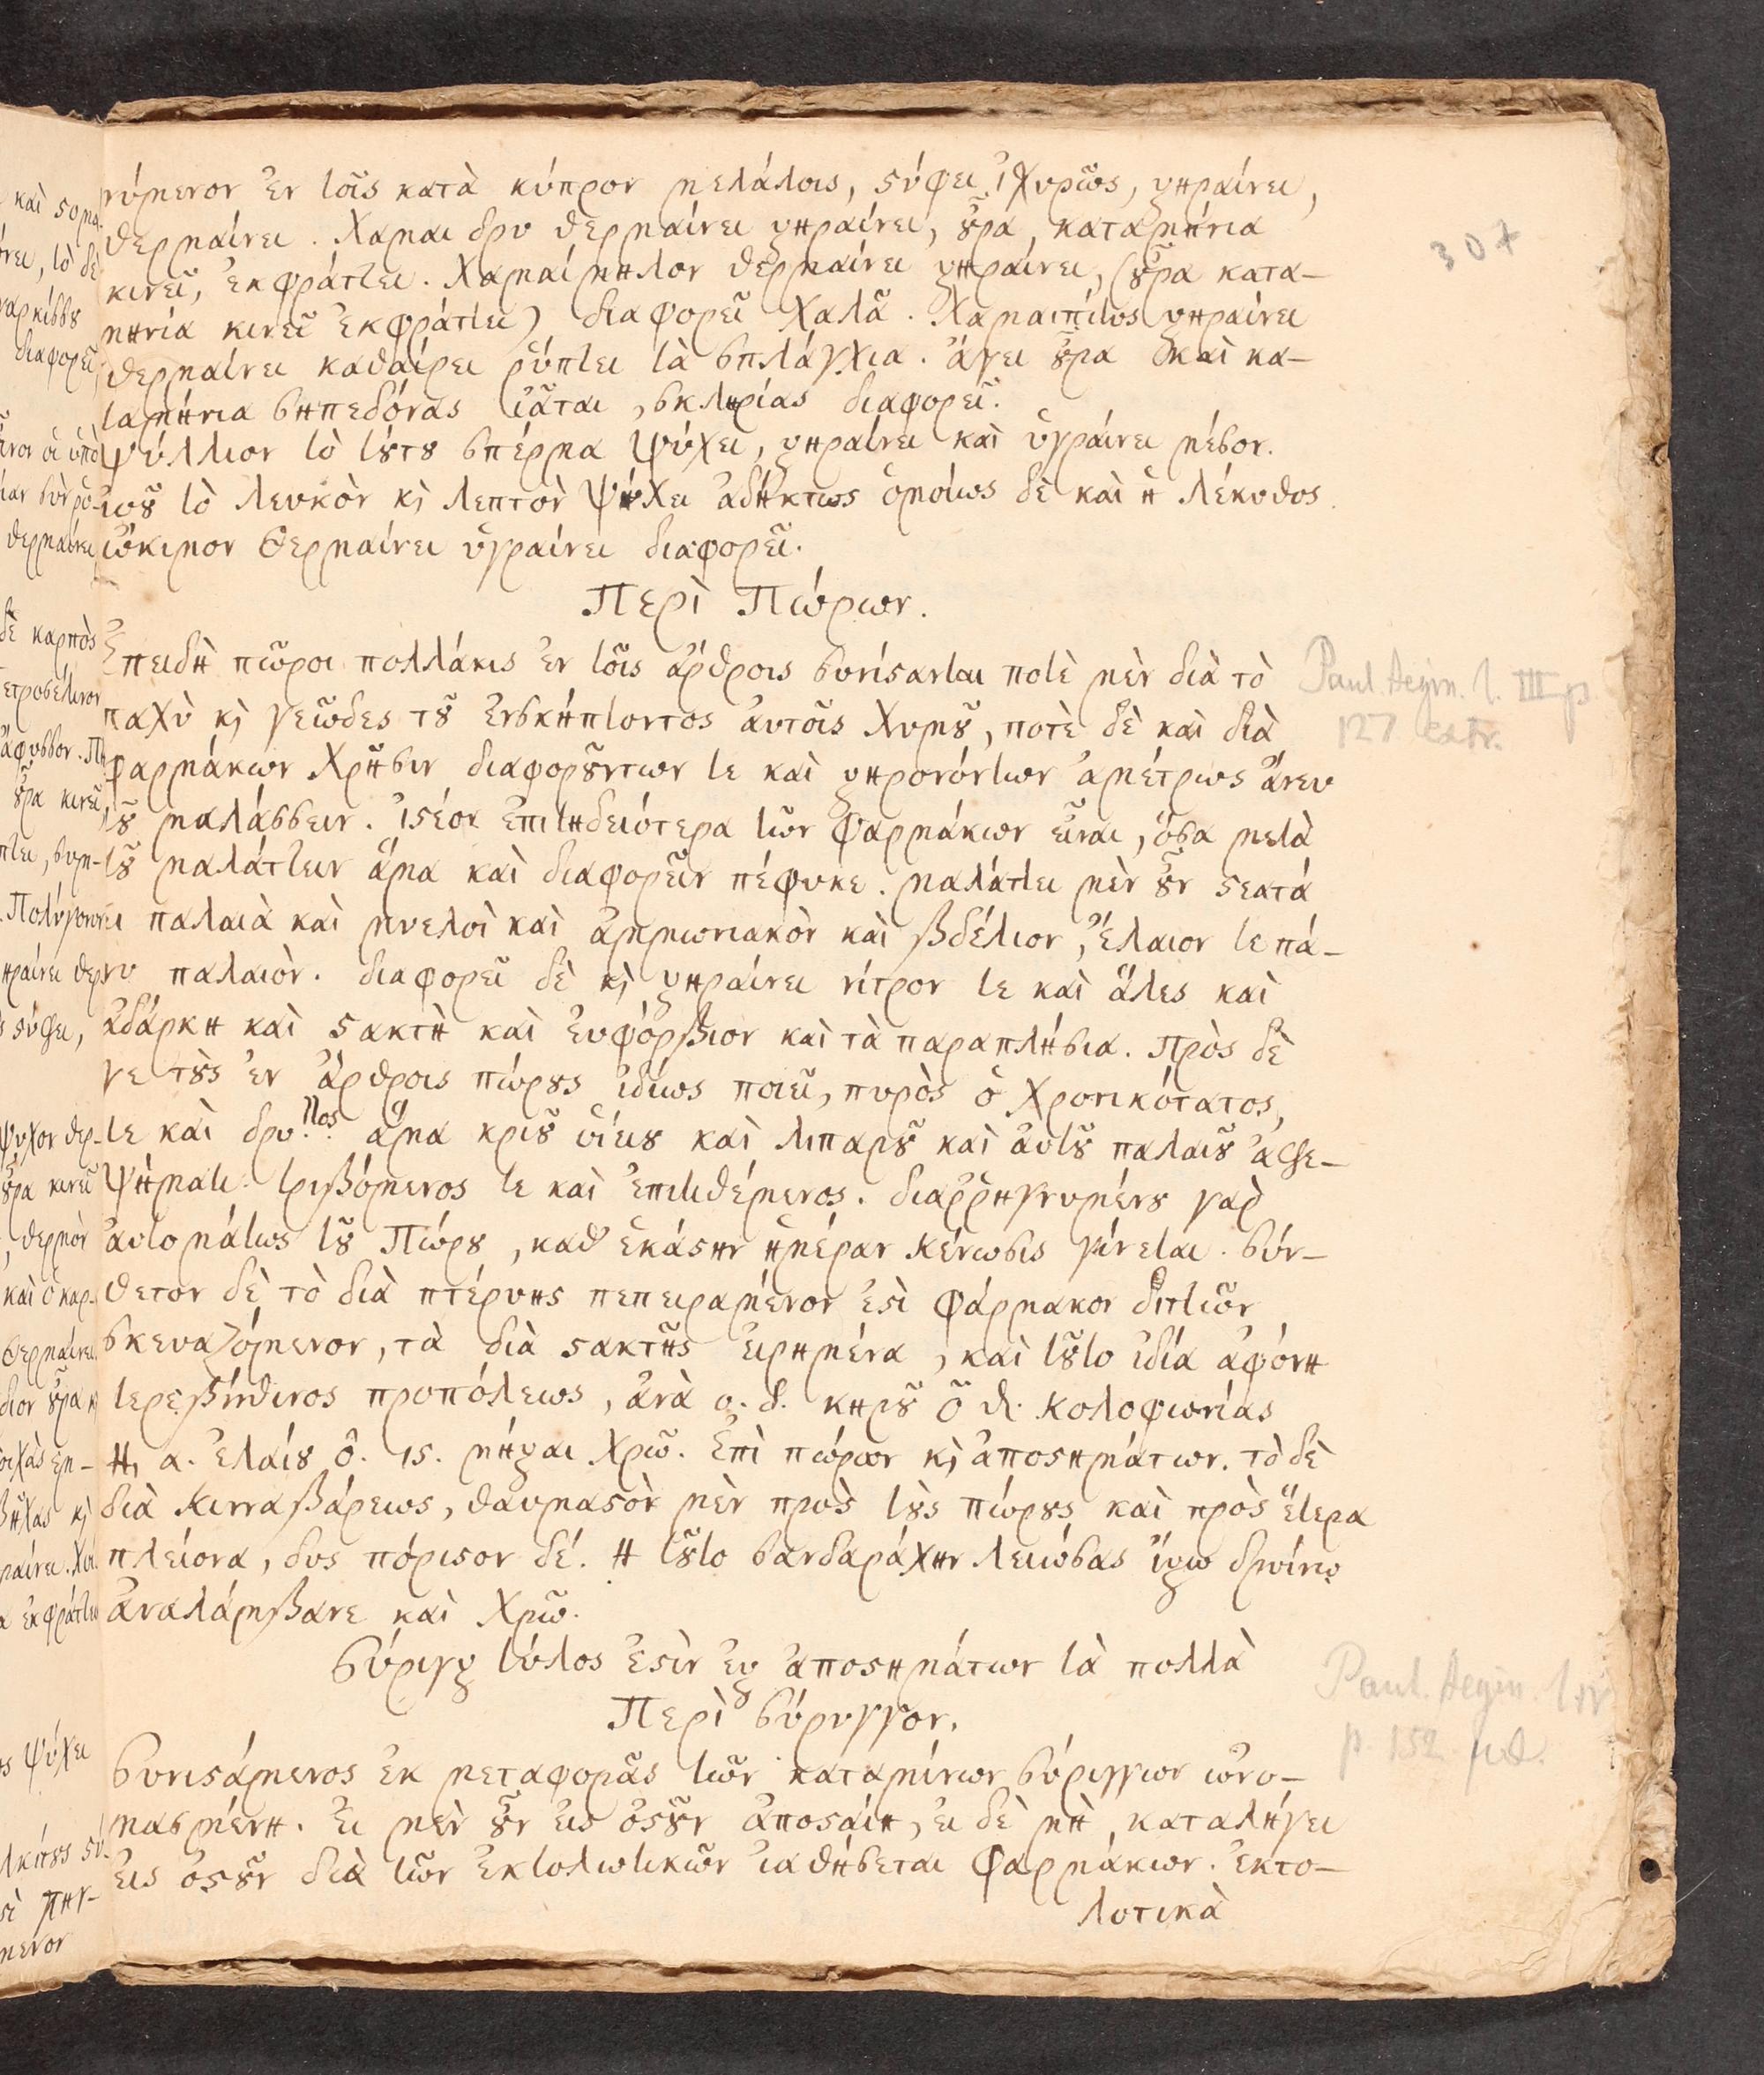 νύμενον ἐν τοῖς κατὰ κύπρον μετάλοις, στύφει ἰχυρῶς, ξηραίνει,
θερμαίνει. Χαμαι δρυ θερμαίνει ξηραίνει, οὖρα, καταμήνια
κινεῖ, ἐκφράττει. Χαμαίμηλον θερμαίνει ξηραίνει, (οὖρα κατα-
μηνία κινεῖ ἐκφράττει) διαφορεῖ χαλᾶ. Χαμαιπίτυς ξηραίνει
θερμαίνει καθαίρει ῥύπτει τὰ σπλάγχια. ἄγει οὖρα καὶ κα-
ταμήνια σηπεδόνας ἰᾶται, σκληρίας διαφορεῖ.
Ψύλλιον τὸ τούτου σπέρμα ψύχει, ξηραίνει καὶ ὑγραίνει μέσον.
ὠοῦ τὸ λευκὸν κὶ λεπτὸν ψύχει ἀδήκτως ὁμοίως δὲ καὶ ἡ λέκυθος.
ὤκιμον θερμαίνει ὑγραίνει διαφορεῖ.
Περὶ Πώρων.
Ἐπειδὴ πῶροι πολλάκις ἐν τοῖς ἄρθροις συνίστανται ποτὲ μὲν διὰ τὸ
παχὺ κὶ γεῶδες τοῦ ἐνσκήπτοντος αὐτοῖς χυμοῦ, ποτὲ δὲ καὶ διὰ
φαρμάκων χρῆσιν διαφορούντων τε καὶ ξηρονόντων ἀμέτρως ἄνευ
τοῦ μαλάσσειν. ἰστέον ἐπιτηδειότερα τῶν φαρμάκων εἶναι, ὅσα μετὰ
τοῦ μαλάττειν ἅμα καὶ διαφορεῖν πέφυκε. μαλάττει μὲν οὖν στεατά
παλαιὰ καὶ μυελοὶ καὶ ἀμμωνιακὸν καὶ βδέλιον, ἔλαιον τε πά-
νυ παλαιὸν. διαφορεῖ δὲ κὶ ξηραίνει νίτρον τε καὶ ἅλες καὶ
ἀδάρκη καὶ στακτὴ καὶ ἐυφόρβιον καὶ τὰ παραπλήσια. Πρὸς δὲ
γε τοὺς ἐν ἄρθροις πώρους ἰδίως ποιεῖ, πυρὸς ὁ χρονικότατος,
τε καὶ δρυ.πος. ἅμα κριοῦ ὑίειου καὶ λιπαροῦ καὶ αὐτοῦ παλαιοῦ ἀφε-
ψήματι. τριβόμενος τε καὶ ἐπιτιθέμενος. διαῤῥηγνυμένου γαρ
αὐτομάτως τοῦ Πώρου, καθ ἑκάστην ἡμέραν κένωσις γίνεται. σύν-
θετον δὲ τὸ διὰ πτέρνης πεπειραμένον ἐστὶ φάρμακον διττῶν
σκευαζόμενον, τὰ διὰ στακτῆς εἰρημένα, καὶ τοῦτο ἰδία ἀφόνη
τερεβίνθινος προπόλεως, ἀνὰ ο. δ. κηροῦ ο θ. κολοφωνίας
α. ἐλαίου ο. ιστ. μῆξαι χρῶ. Ἐπὶ πώρων κὶ ἀποστημάτων. τὸ δὲ
διὰ κινναβάρεως, θαυμαστὸν μὲν πρὸς τοὺς πώρους καὶ πρὸς ἕτερα
πλείονα, δυς πόριστον δέ. ἢ τοῦτο σανδαράχην λειώσας ἴξω δρυίνῳ
ἀναλάμβανε καὶ χρῶ.
Σύριγξ τύλος ἐστὶν ἐξ ἀποστημάτων τὰ πολλὰ
Περὶ σύρυγγον.
Συνιστάμενος ἐκ μεταφορᾶς τῶν καταμίνων σύριγγων ὠνο-
μασμένη. Εἰ μὲν οὖν εἰς ὀστοῦν ἀποσταίη, εἰ δὲ μὴ, καταλήγει
εἰς ὀστοῦν διὰ τῶν ἐκτολωτικῶν ἰαθήσεται φαρμάκων. ἐκτο-
λυτικὰ
307
Paul. Aegin. l. III p
127 extr.
Paul. Aegin. l IV
p. 152 md.